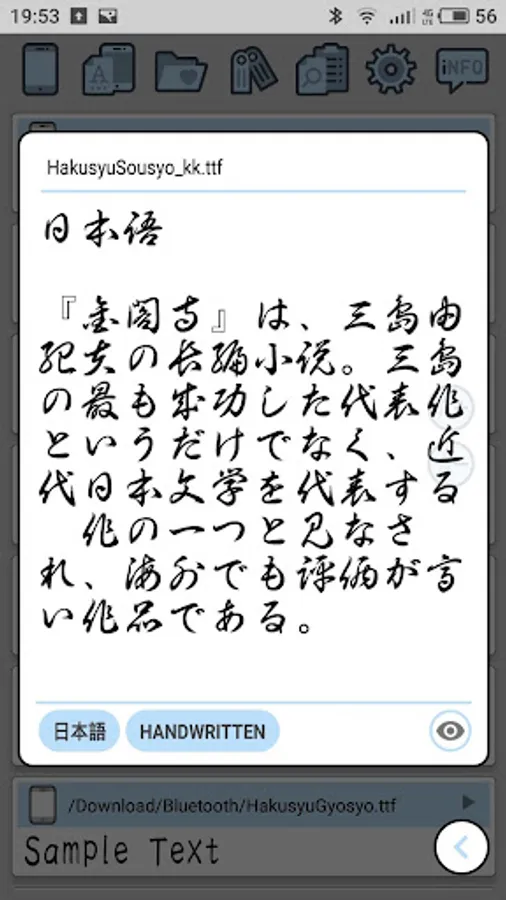 19:53 4G LTE 56
iNFO
HakusyuSousyo_kk.ttf
日本语
『金阁寺』は、三島由
紀夫の长编小说。三島
の最も成功した代表作
というだけでなく、近
代日本文学を代表する
作の一つと见なさ
れ、海外でも评価が高
い作品である。
日本語 HANDWRITTEN
/Download/Bluetooth/HakusyuGyosyo.ttf
Sample Text